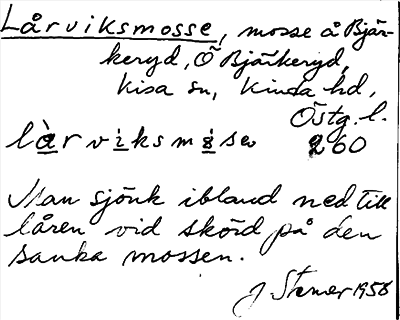 Lårviksmosse, mosse å Bjär-
keryd, Ö Bjärkeryd,
Kisa sn, Kinda hd,
Östg. l.
làrviksmåsen 260
Man sjönk ibland ned till
låren vid skörd på den
sanka mossen.
J. Stener 1956